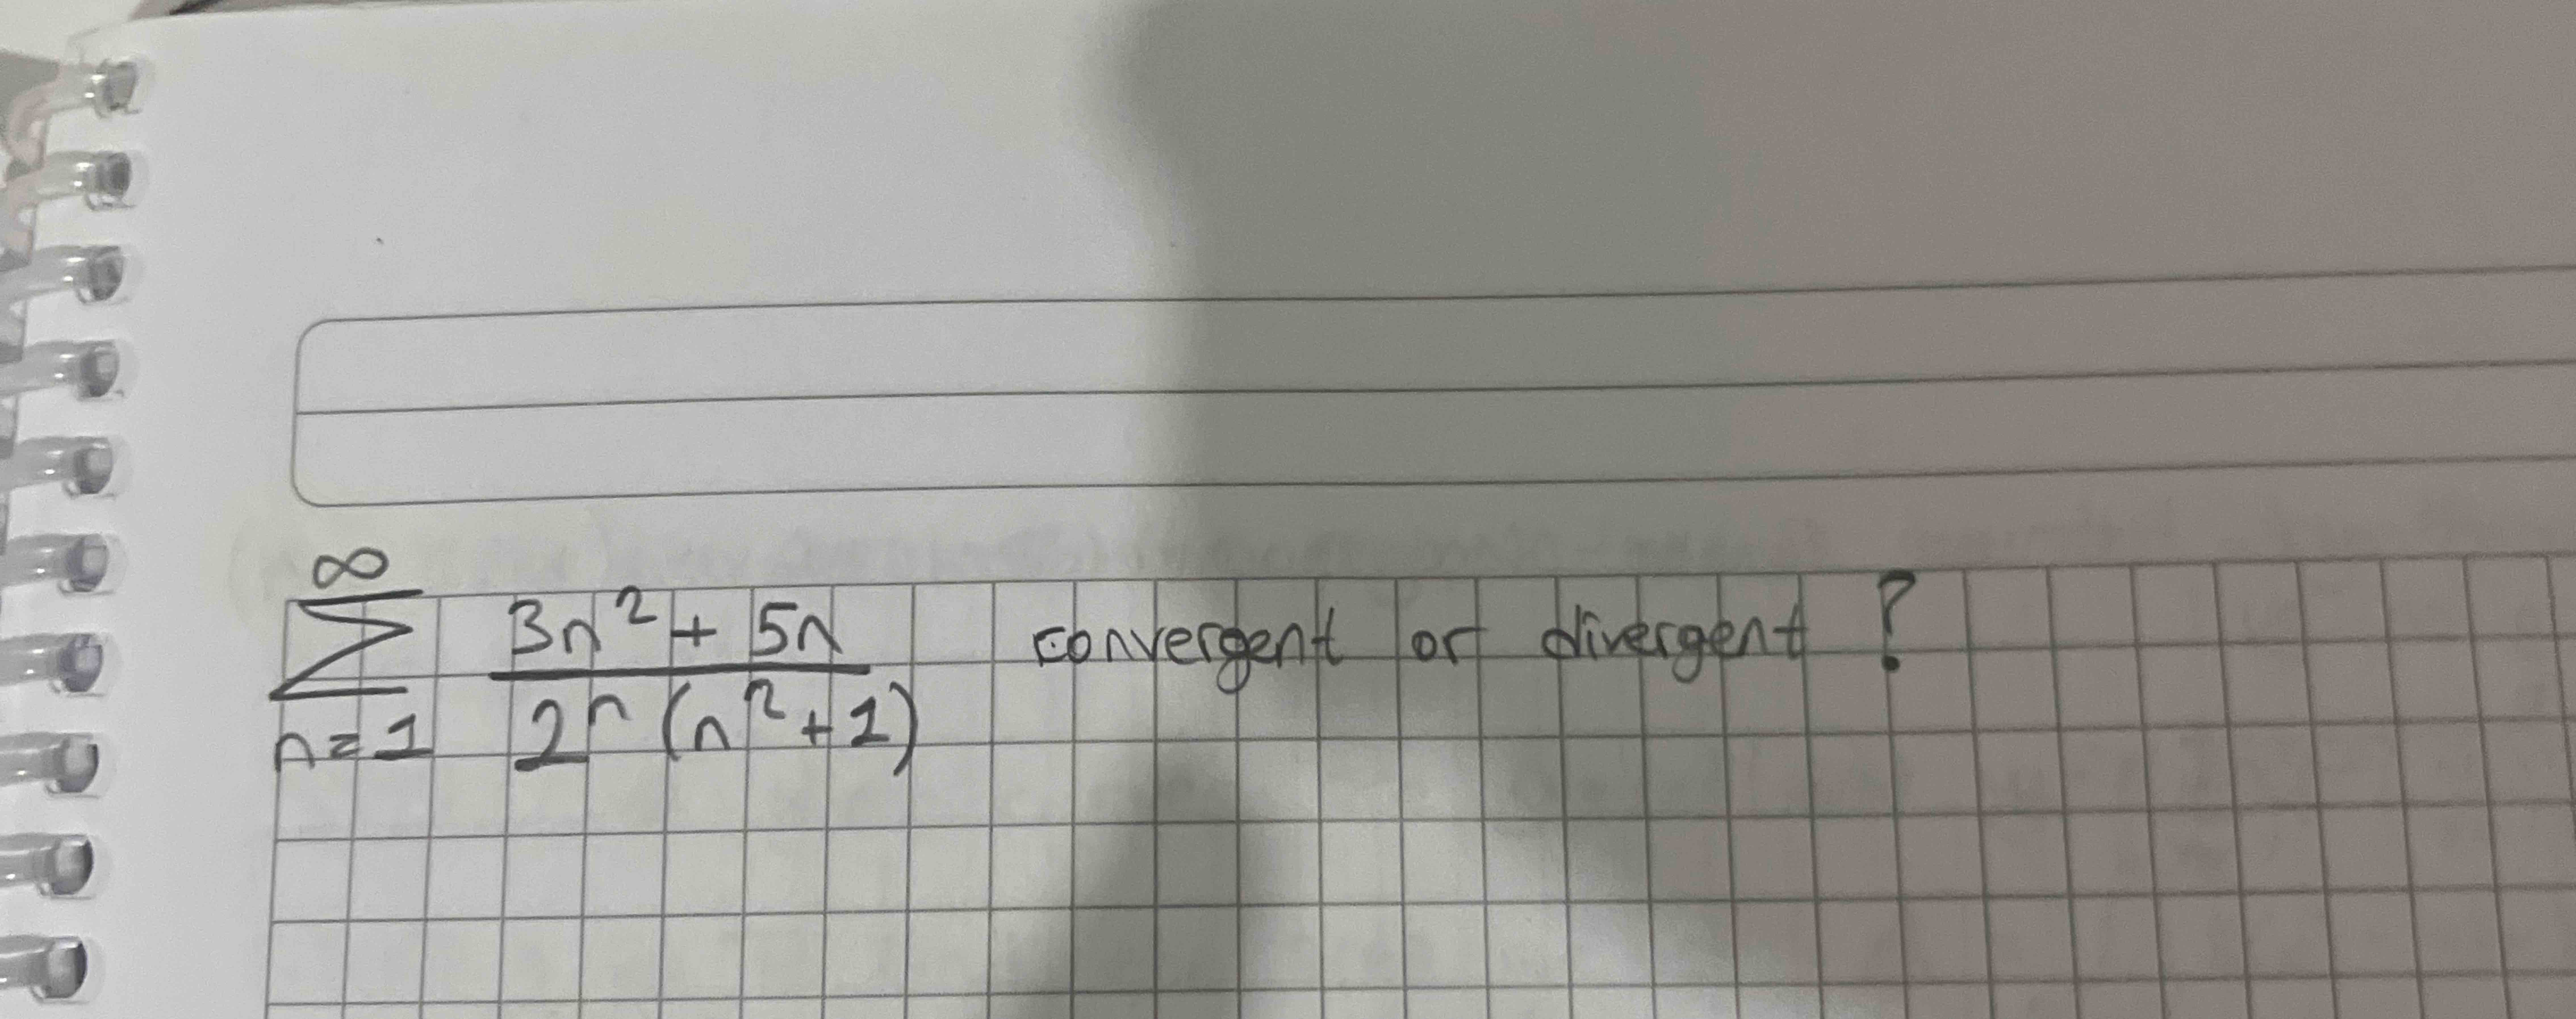 ∞
∑ 3n² + 5n / 2ⁿ (n² + 1) convergent or divergent ?
n = 1